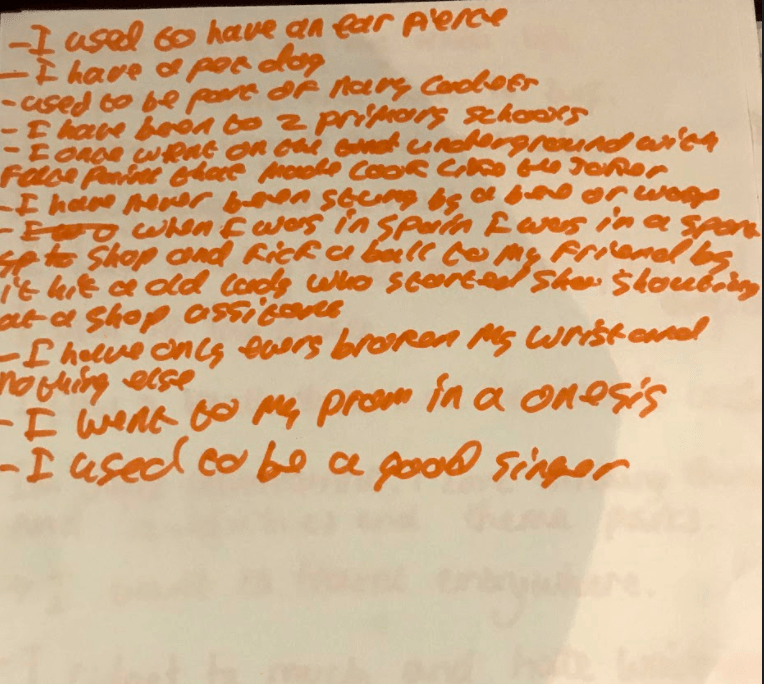 - I used to have an ear pierce
- I have a pet dog
- used to be part of navy cadets
- I have been to 2 primary schools
- I once went on the underground with
face paint that made look like the Joker
- I have never been stung by a bee or wasp
- when I was in spain I was in a spor
shop and kick a ball to my friend by
it hit a old lady who started shouting
at a shop assitant
- I have only evers broken my wrist and
nothing else
- I went to my prom in a onesis
- I used to be a good singer
and theme parks
I want to travel everywhere.